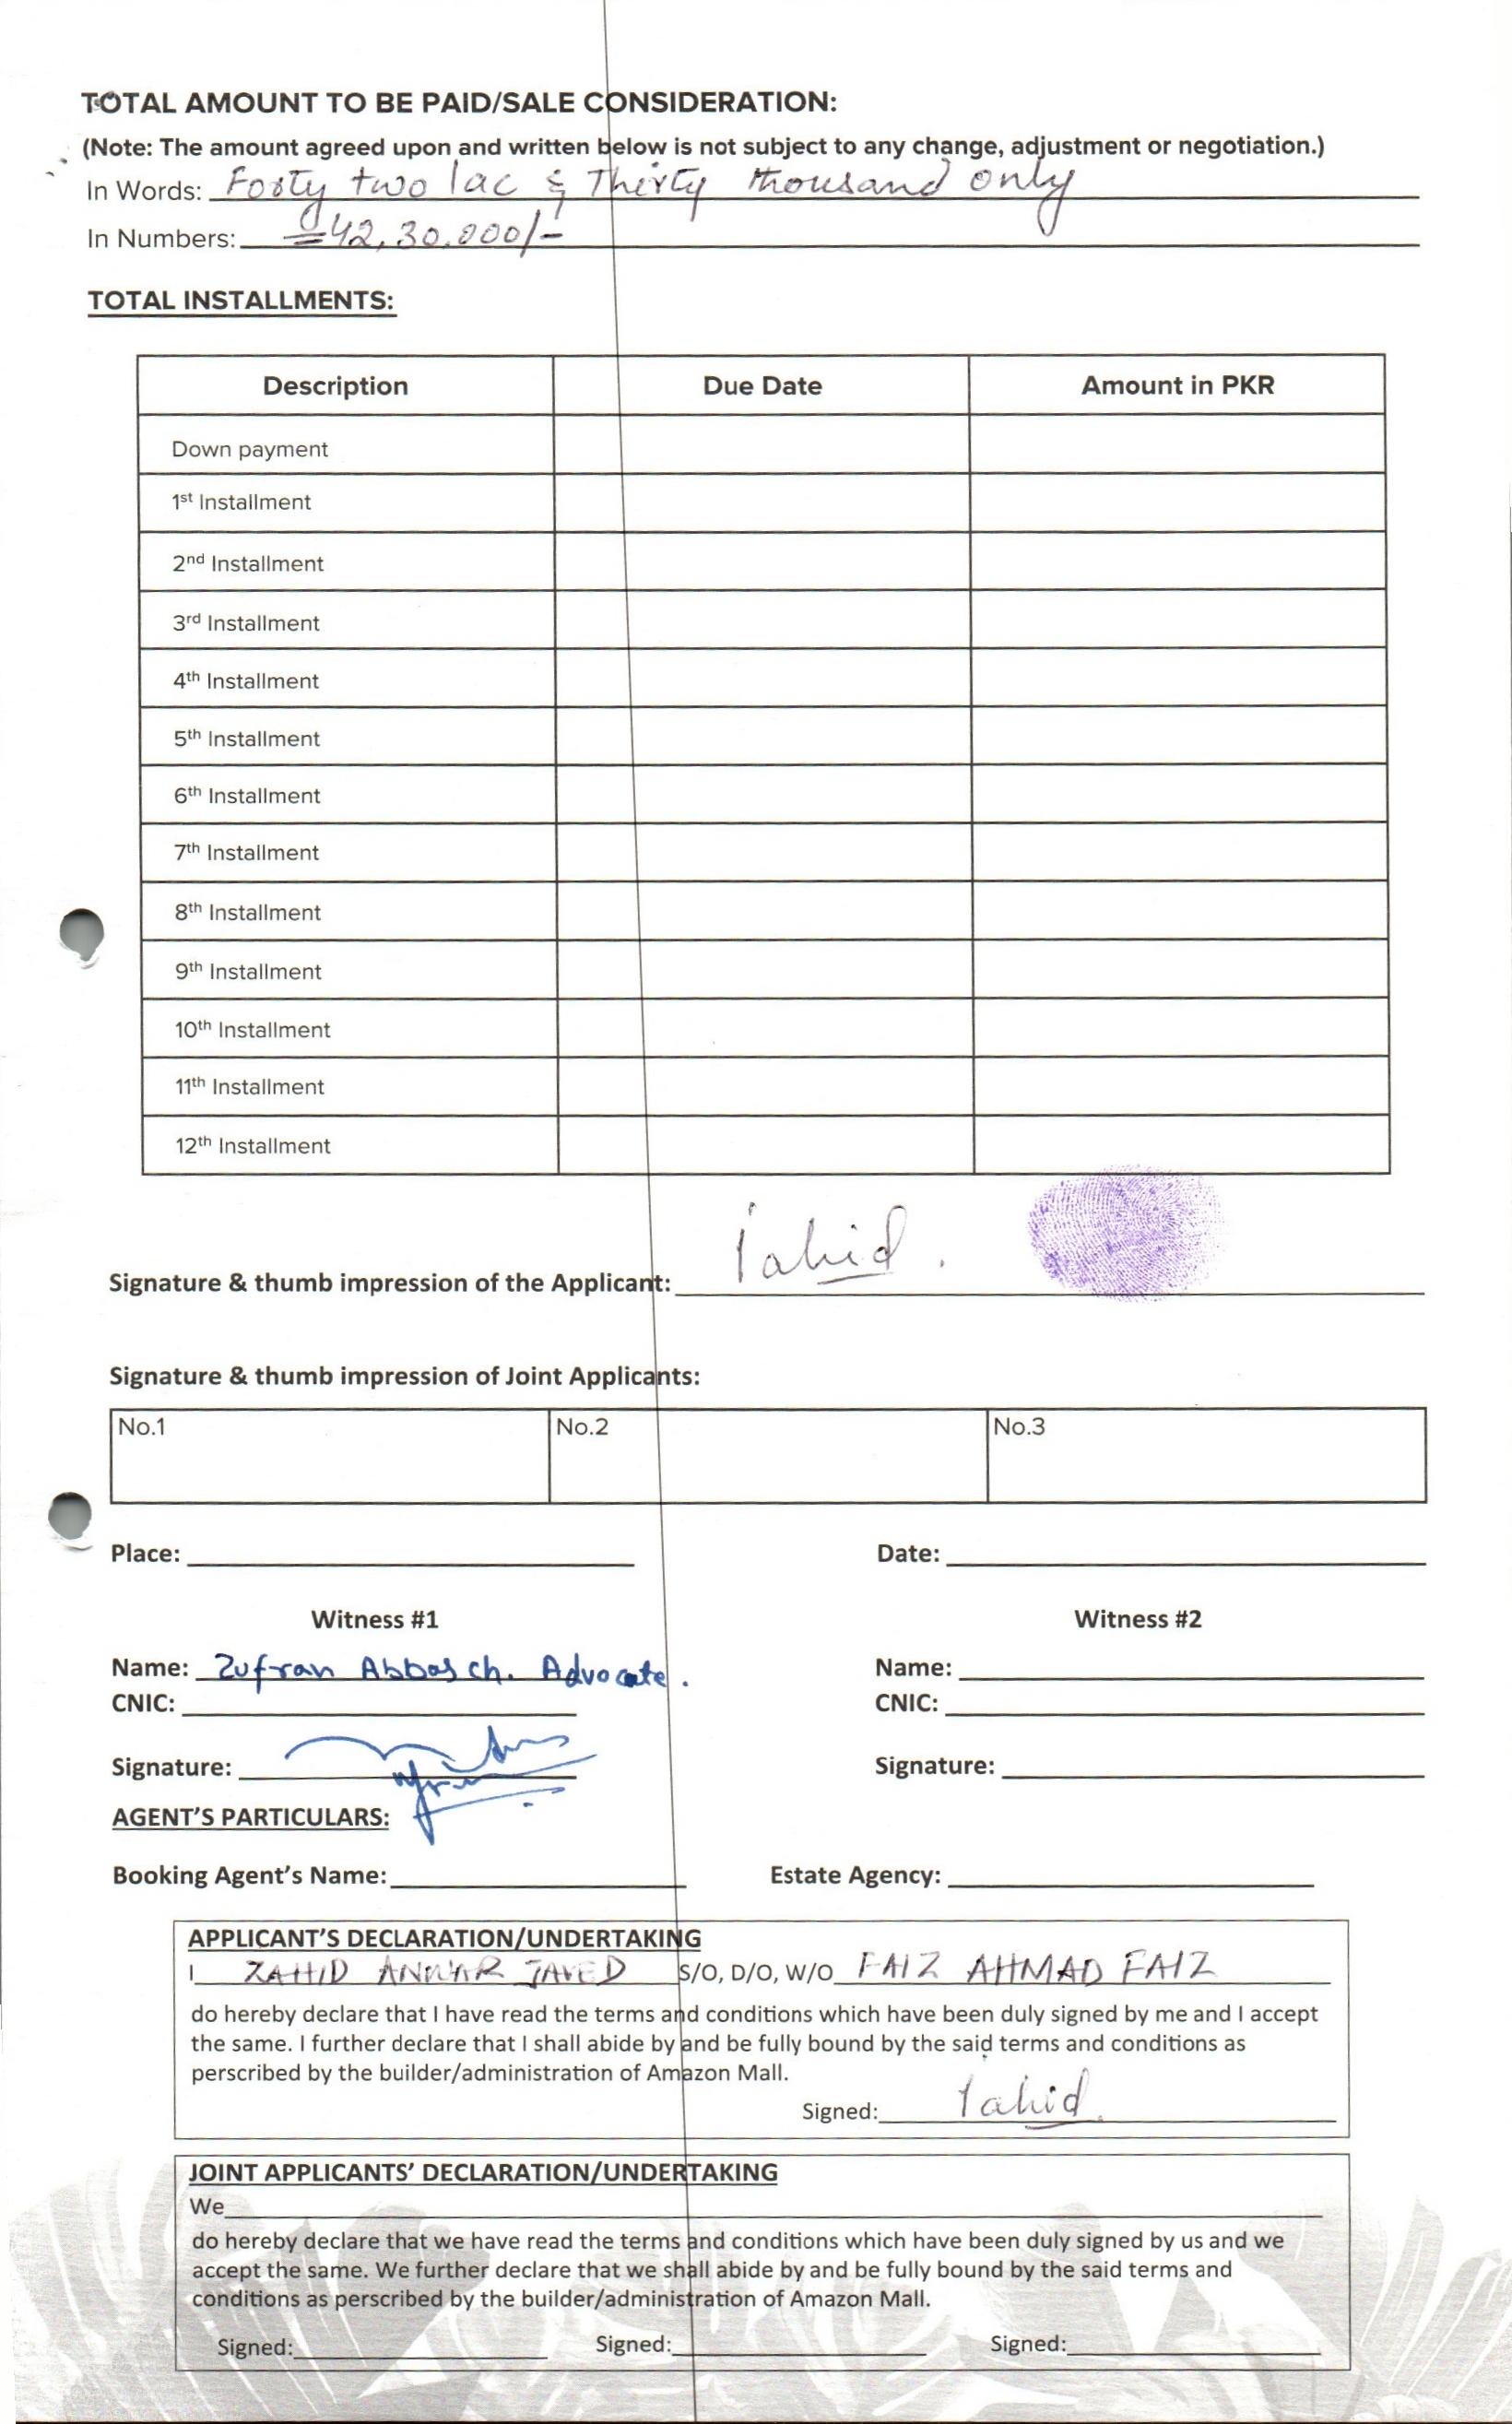 TOTAL AMOUNT TO BE PAID/SALE CONSIDERATION:
(Note: The amount agreed upon and written below is not subject to any change, adjustment or negotiation.)
In Words: Forty two lac & Thirty thousand only
In Numbers: =42,30.000/-
TOTAL INSTALLMENTS:
Description Due Date Amount in PKR
Down payment
1st Installment
2nd Installment
3rd Installment
4th Installment
5th Installment
6th Installment
7th Installment
8th Installment
9th Installment
10th Installment
11th Installment
12th Installment
Signature & thumb impression of the Applicant: Zahid.
Signature & thumb impression of Joint Applicants:
No.1 No.2 No.3
Place: Date:
Witness #1 Witness #2
Name: Zufran Abbas ch. Advocate. Name:
CNIC: CNIC:
Signature: Signature:
AGENT'S PARTICULARS:
Booking Agent's Name: Estate Agency:
APPLICANT'S DECLARATION/UNDERTAKING
I ZAHID ANWAR JAVED S/O, D/O, W/O FAIZ AHMAD FAIZ
do hereby declare that I have read the terms and conditions which have been duly signed by me and I accept
the same. I further declare that I shall abide by and be fully bound by the said terms and conditions as
perscribed by the builder/administration of Amazon Mall.
Signed: Zahid.
JOINT APPLICANTS' DECLARATION/UNDERTAKING
We
do hereby declare that we have read the terms and conditions which have been duly signed by us and we
accept the same. We further declare that we shall abide by and be fully bound by the said terms and
conditions as perscribed by the builder/administration of Amazon Mall.
Signed: Signed: Signed: